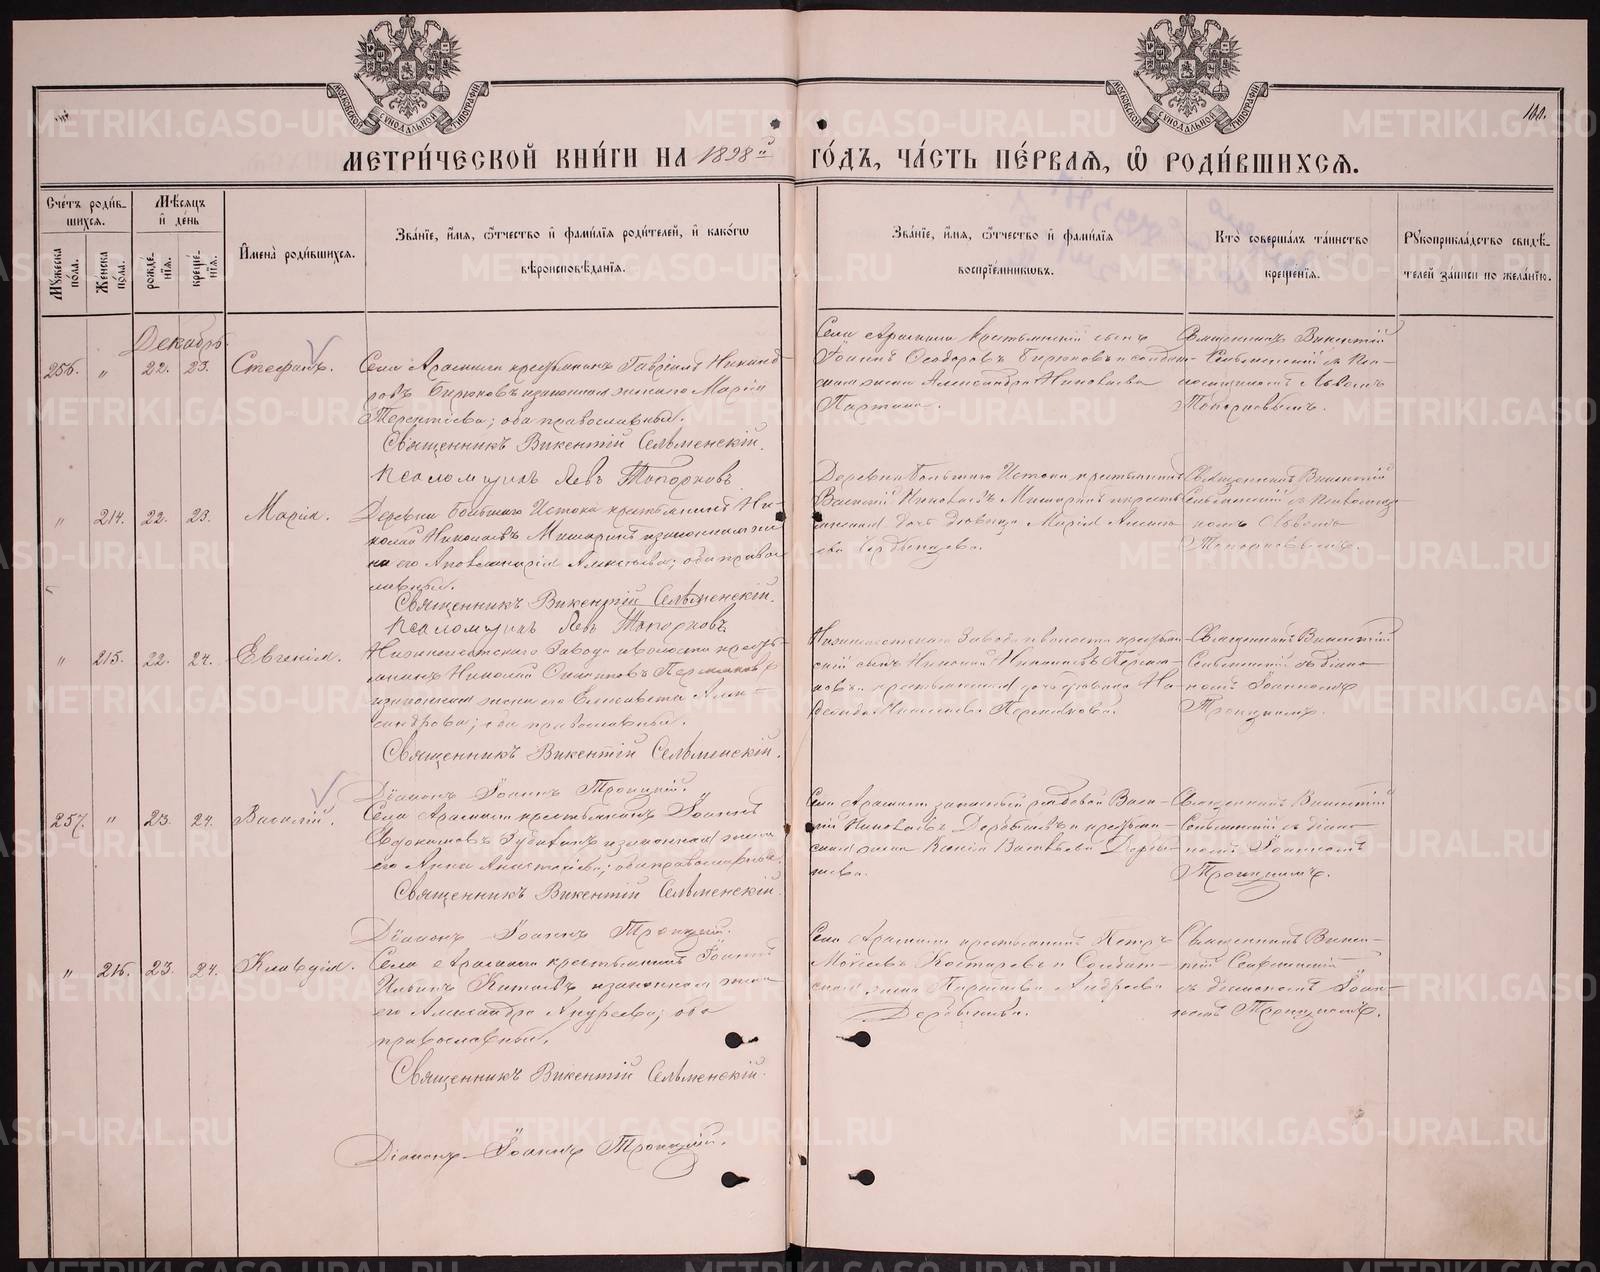 МОСКОВСКОЙ СѴНОДАЛЬНОЙ ТИПОГРАФІИ
МОСКОВСКОЙ СѴНОДАЛЬНОЙ ТИПОГРАФІИ
160.
МЕТРИ́ЧЕСКОЙ КНИ́ГИ НА 1898й ГО́ДЪ, ЧА́СТЬ ПЕ́РВАЯ, Ѡ РОДИ́ВШИХСЯ.
Сче́тъ роди́в-
шихся.
Мѣ́сяцъ
и҆ де́нь
Мꙋ́жеска по́ла.
Же́нска по́ла.
рожде́-нїя.
креще́-нїя.
И҆мена̀ роди́вшихся.
Зва́нїе, и҆́мя, ѻ҆́тчество и҆ фами́лїя роди́телей, и҆ како́гѡ
вѣроисповѣ́данїя.
Зва́нїе, и҆́мя, ѻ҆́тчество и҆ фами́лїя
воспрїе́мниковъ.
Кто̀ соверша́лъ та́инство
креще́нїя.
Рꙋкоприкла́дство свидѣ́-
телей за́писи по жела́нїю.
Декабрь
256. " 22. 23. Стефанъ.
Села Арамили крестьянинъ Гавріилъ Никанд-
ровъ Бирюковъ и законная жена его Марія
Терентіева; оба православные.
Священникъ Викентій Сельменскій.
Псаломщикъ Левъ Топорковъ
Села Арамили крестьянскій сынъ
Іоаннъ Ѳеодоровъ Бирюковъ и солдат-
ская жена Александра Николаева
Священникъ Викентій
Сельменскій съ Пса-
ломщикомъ Львомъ
Топорковымъ.
" 214. 22. 23. Марія.
Деревни Большаго Истока крестьянинъ Ни-
колай Николаевъ Мишаринъ и законная же-
на его Аполлинарія Алексѣева; оба право-
славные.
Священникъ Викентій Сельменскій.
Псаломщикъ Левъ Топорковъ
Деревни Большаго Истока крестьянинъ
Василій Николаевъ Мишаринъ и кресть-
янская дочь дѣвица Марія
Священникъ Викентій
Сельменскій съ Псаломщи-
комъ Львомъ
Топорковымъ.
" 215. 22. 24. Евгенія.
Нижнеисетскаго Завода и волости кресть-
янинъ Николай
законная жена его Елисавета Алек-
сандрова; оба православные.
Священникъ Викентій Сельменскій.
Діаконъ Іоаннъ Троицкій.
Нижнеисетскаго Завода и волости крестьян-
скій сынъ Николай Николаевъ
крестьянская дочь дѣвица
Священникъ Викентій
Сельменскій съ діако-
номъ Іоанномъ
Троицкимъ.
257. " 23. 24. Василій.
Села Арамили крестьянинъ Іоаннъ
Евдокимовъ и законная жена
его Анна Анастасіева; оба православные.
Священникъ Викентій Сельменскій.
Діаконъ Іоаннъ Троицкій.
Села Арамили запасный рядовой Васи-
лій Николаевъ Дерябинъ и крестьян-
ская жена Ксенія Васильева
Священникъ Викентій
Сельменскій съ діако-
номъ Іоанномъ
Троицкимъ.
" 216. 23. 24. Клавдія.
Села Арамили крестьянинъ Іоаннъ
Ильинъ Китаевъ и законная жена
его Александра Андреева; оба
православные.
Священникъ Викентій Сельменскій.
Діаконъ Іоаннъ Троицкій.
Села Арамили крестьянинъ Петръ
Моисеевъ Костаревъ и Солдат-
ская жена Параскева Андреева
Священникъ Викен-
тій Сельменскій
съ діакономъ Іоан-
номъ Троицкимъ.
METRIKI.GASO-URAL.RU